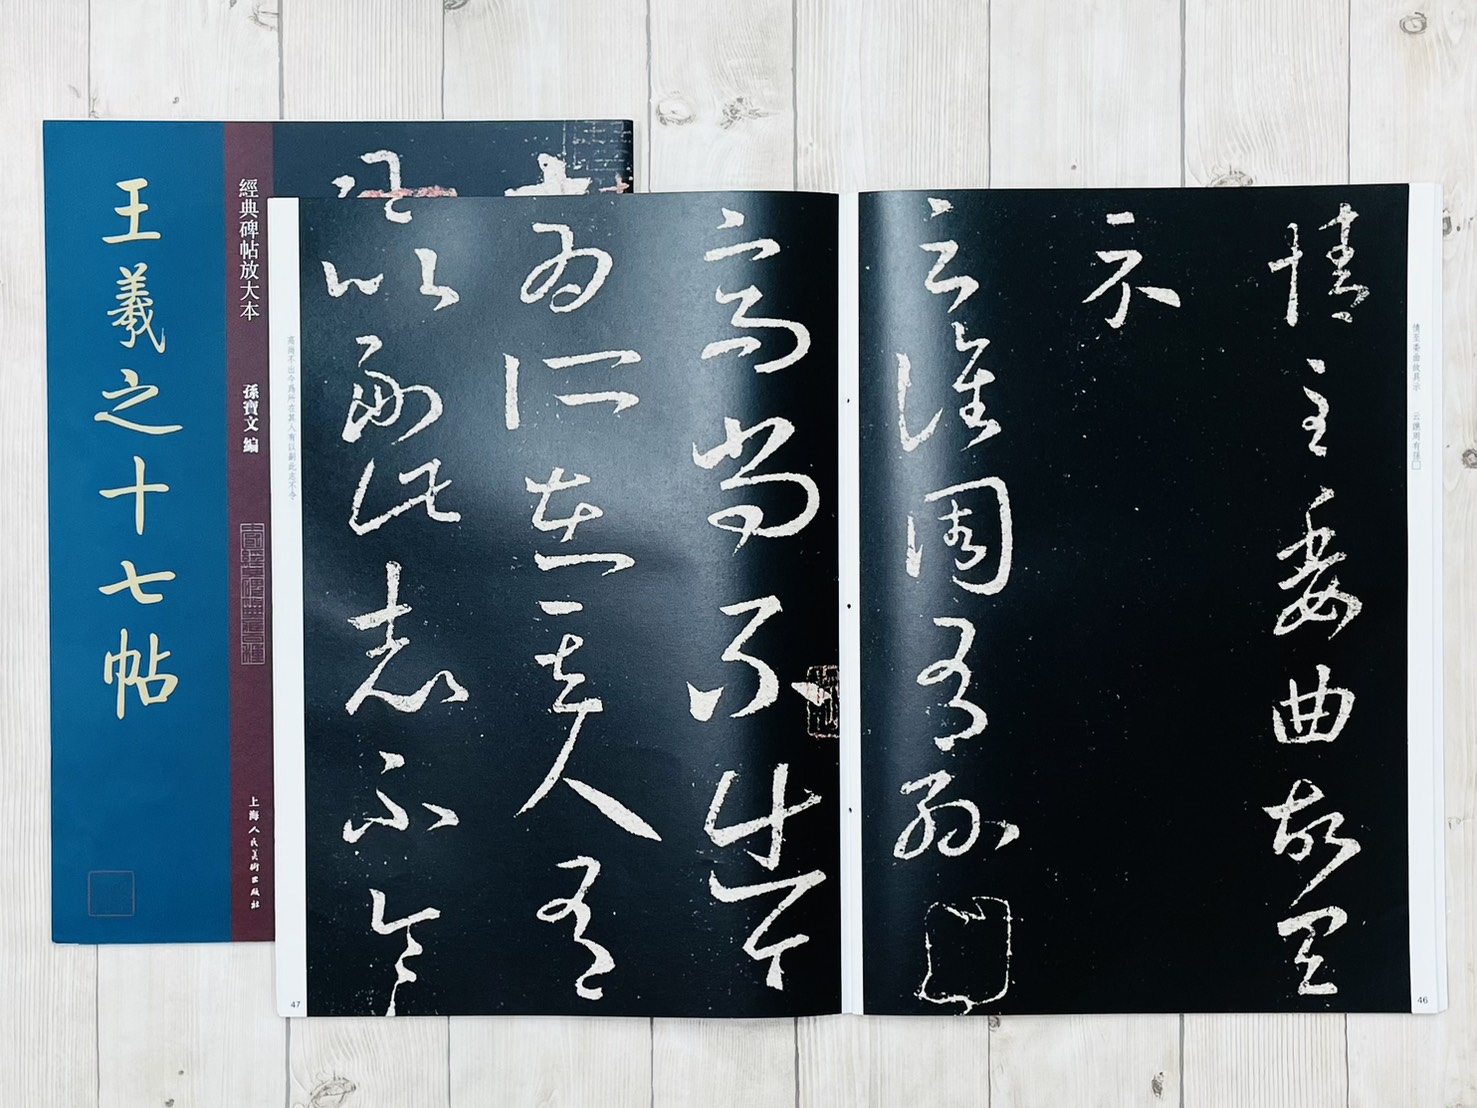 王羲之十七帖
經典碑帖放大本
孫寶文 編
上海人民美術出版社
情至委曲故具
示
云譙周有孫
情至委曲故具示 云譙周有孫□
46
高尚不出今
為所在其人有
以副此志不令
高尚不出今為所在其人有以副此志不令
47